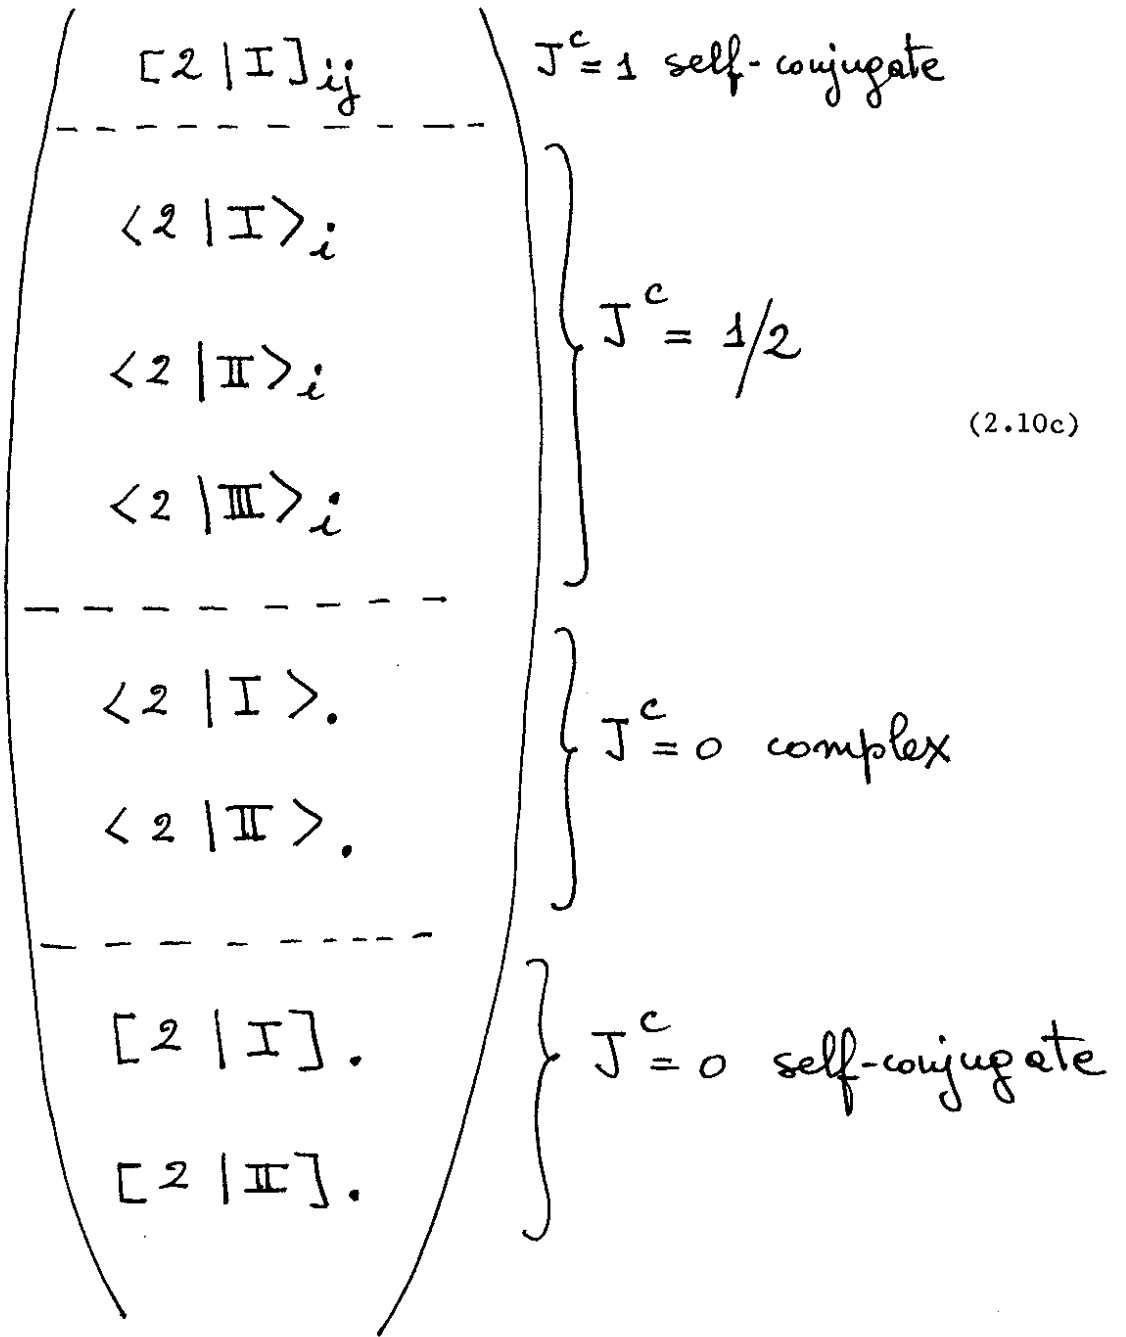 [2|I]ij J^c=1 self-conjugate
<2|I>i
J^c = 1/2
<2|II>i
(2.10c)
<2|III>i
<2|I>.
J^c=0 complex
<2|II>.
[2|I]. J^c=0 self-conjugate
[2|II].